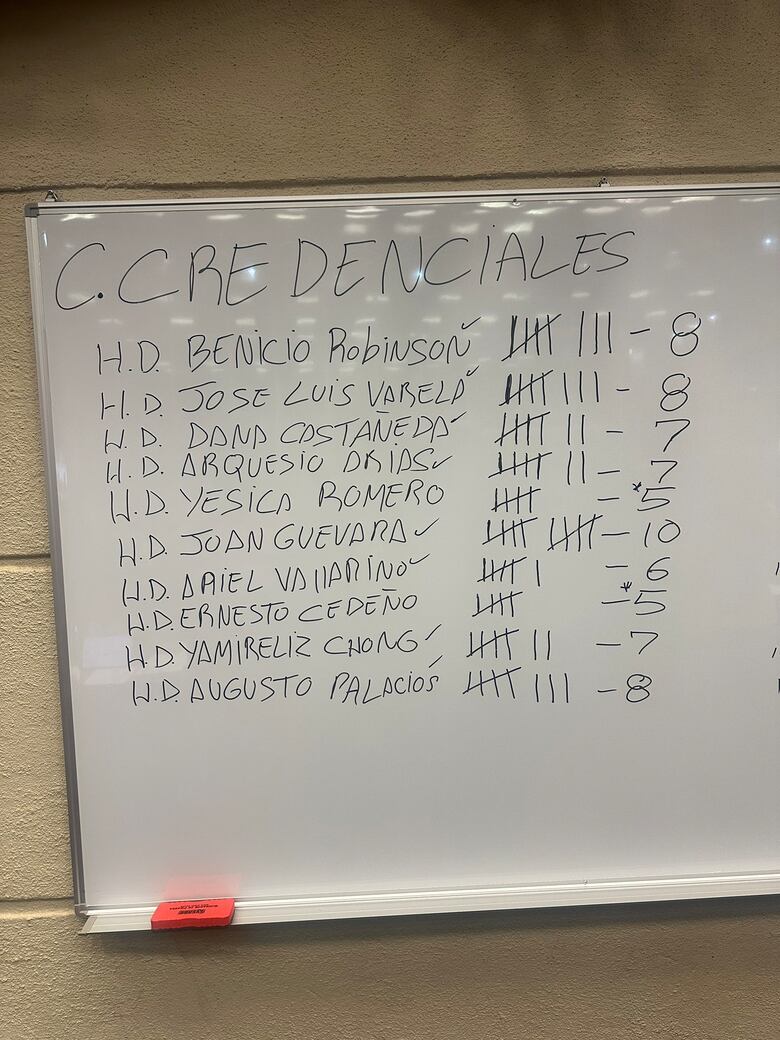 C. CREDENCIALES
H.D. BENICIO RobiNSON ✓ 8
H.D. JOSE LUIS VARELA ✓ - 8
H.D. DANA COSTAÑEDA ✓ - 7
H.D. ARQUESIO ARIAS ✓ - 7
H.D. YESICA ROMERO - *5
H.D. JOAN GUEVARA ✓ - 10
H.D. ARIEL VALLARINO ✓ - 6
H.D. ERNESTO CEDEÑO - *5
H.D. YAMIRELIZ CHONG ✓ - 7
H.D. AUGUSTO PALACIOS ✓ - 8